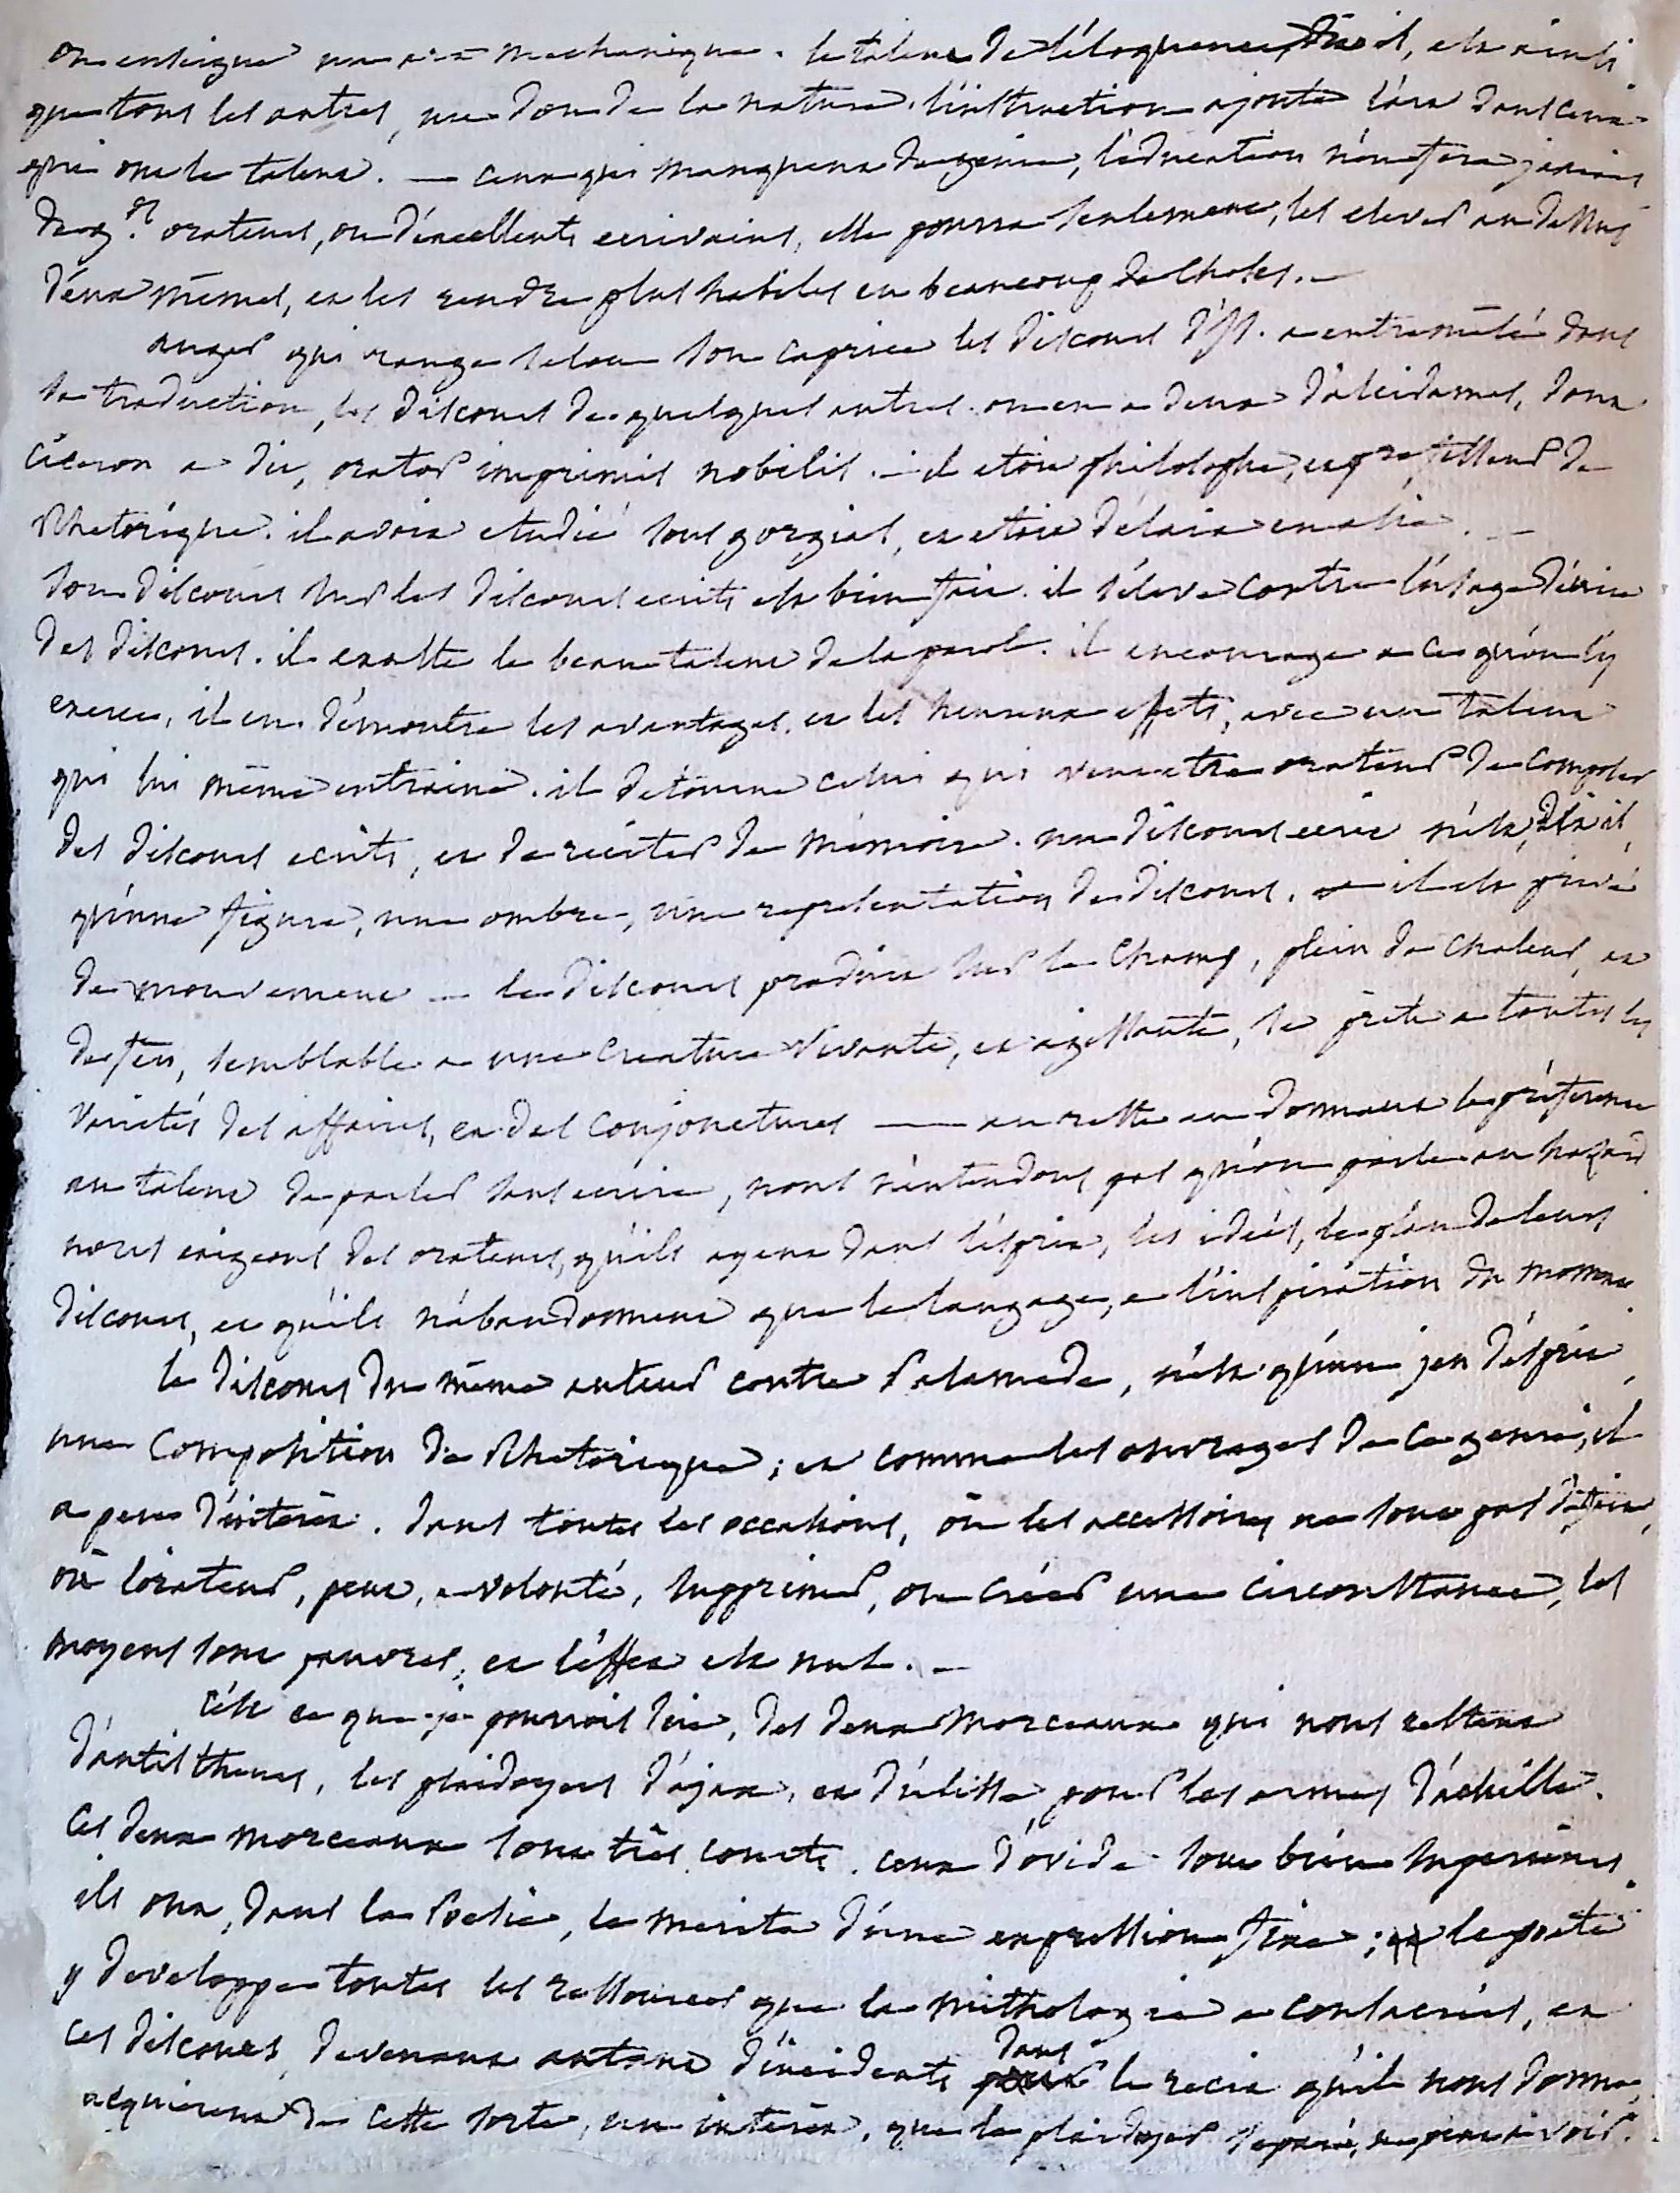 on enseigne un art mechanique. le talent de l'éloquence, dit il, est ainsi
que tous les autres, un don de la nature. l'instruction ajoute l'art dans ceux
qui ont le talent. — ceux qui manquent de genie, l'éducation n'en fera jamais
de g.ds orateurs, ou d'éxcellents ecrivains, elle pourra seulement, les elever au dessus
d'éux mêmes, et les rendre plus habiles en beaucoup de choses. —
auger qui range selon son caprice les discours d'Is. a entremêlé dans
sa traduction, les discours de quelques autres. on en a deux d'alcidamas, dont
ciceron a dit, orator imprimis nobilis. — il etoit philosophe, et professeur de
Rhetorique. il avoit etudié sous gorgias, et etoit d'élaia en asie. —
son discours sur les discours ecrits est bien fait. il s'éleve contre l'úsage d'écrire
des discours. il exalte le beau talent de la parole. il encourage a ce qu'on s'y
exerce, il en démontre les avantages, et les heureux effets, avec un talent
qui lui même entraine. il détourne celui qui veut etre orateur de composer
des discours ecrits, et de reciter de mémoire. un discours ecrit n'est, dit il,
qu'une figure, une ombre, une representation de discours. il est privé
de mouvement — le discours produit sur le champ, plein de chaleur, et
de feu, semblable a une creature vivante, et agissante, se prête a toutes les
varietés des affaires, et des conjonctures — au reste en donnant la préference
au talent de parler sans ecrire, nous n'entendons pas qu'on parle au hazard
nous exigeons des orateurs, qu'ils ayent dans l'ésprit, les idées, le plan de leurs
discours, et qu'ils n'abandonnent que le langage, a l'inspiration du moment.
le discours du même auteur contre Palamede, n'est qu'un jeu d'ésprit,
une composition de Rhetorique; et comme les ouvrages de ce genre, il
a peu d'intérêt. dans toutes les occasions, où les accessoires ne sont pas
où l'orateur, peut, a volonté, supprimer, ou créer une circonstance, les
moyens sont pauvres, et l'éffet est nul. —
c'ést ce que je pourrois dire, des deux morceaux qui nous restent
d'antisthenes, les plaidoyers d'ájax, et d'úlisse, pour les armes d'áchille.
ces deux morceaux sont très courts. ceux d'ovide sont bien superieurs.
ils ont, dans la Poesie, le merite d'úne expression fixe; le poete
y developpe toutes les ressources que la mithologie a consacrées, et
ces discours, devenant autant d'incidents dans le recit qu'il nous donne,
acquierent de cette sorte, un intérêt, que le plaidoyer separé, ne peut avoir.